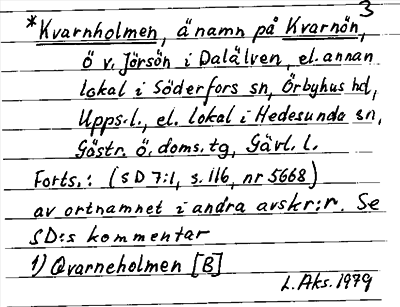 3
*Kvarnholmen, ä namn på Kvarnön,
Ö v. Jörsön i Dalälven, el. annan
lokal i Söderfors sn, Örbyhus hd,
Upps. l., el. lokal i Hedesunda sn,
Gästr. ö. doms. tg, Gävl. l.
Forts.: (SD 7:1, s. 116, nr 5668)
av ortnamnet i andra avskr:r. Se
SD:s kommentar
1) Qvarneholmen [B]
L. Aks. 1979